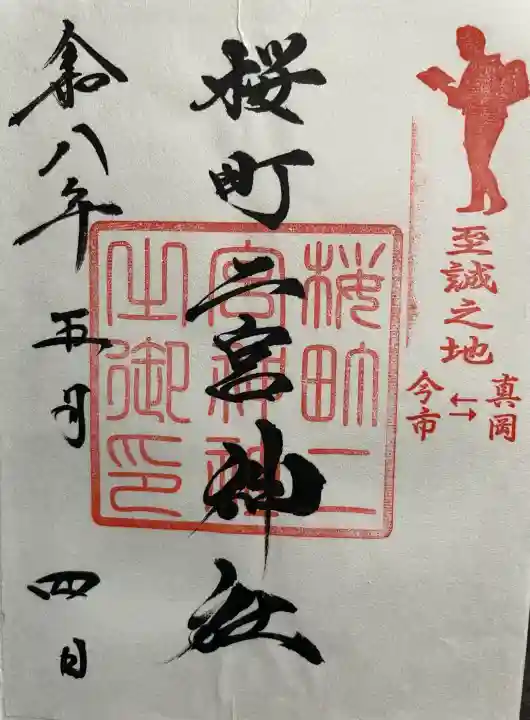 至誠之地
真岡
←→
今市
桜町二宮神社
桜町二
宮神社
之御印
令八年 五月 四日